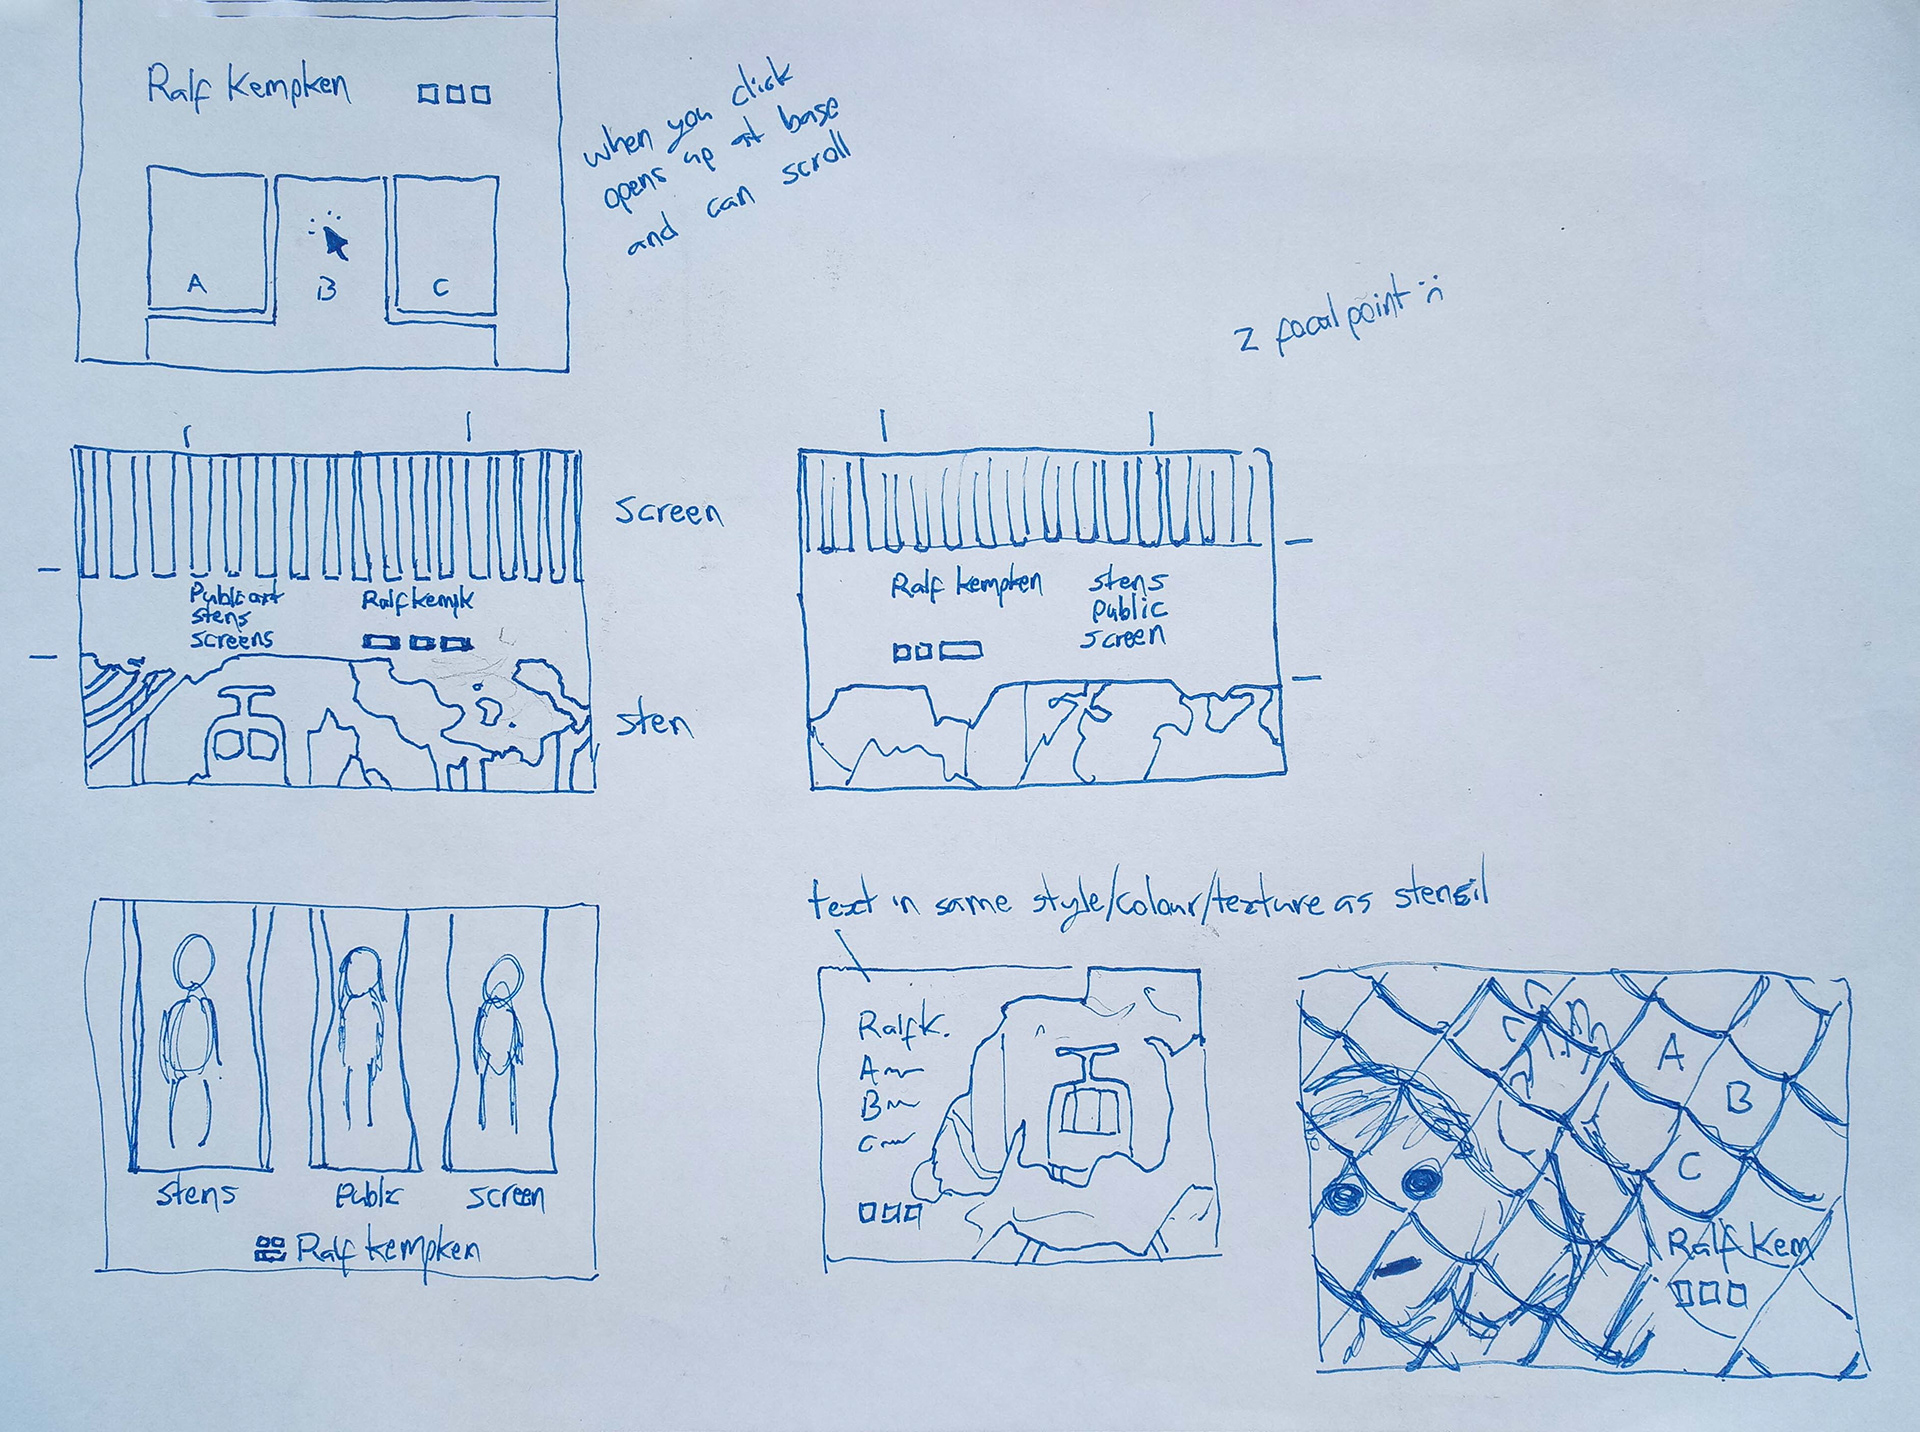 Ralf Kempken
when you click
opens up at base
and can scroll
A
B
C
2 focal point :(
Public art
stens
screens
Ralf kemk
screen
sten
Ralf kempken
stens
public
screen
text in same style/colour/texture as stensil
stens
public
screen
Ralf kempken
Ralf K.
A
B
C
A
B
C
Ralf Kem